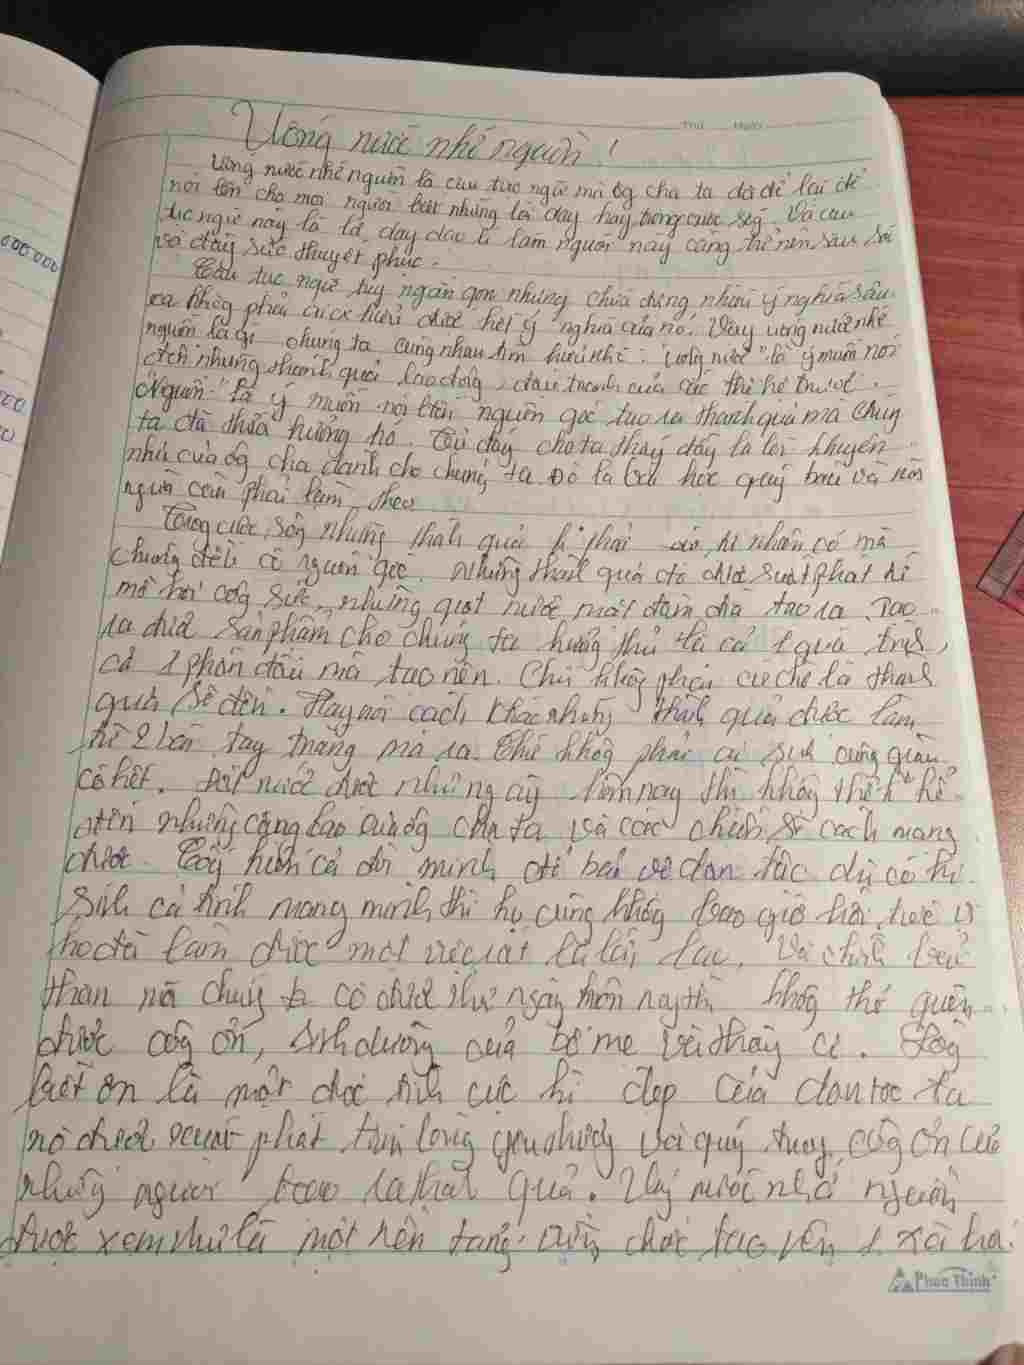 Uống nước nhớ nguồn!
Uống nước nhớ nguồn là câu tục ngữ mà ôg cha ta đã để lại để
nói lên cho mọi người biết những lời dạy hay trong cuộc sốg. Và câu
tục ngữ này là lời dạy đạo lí làm người này càng thể nên sâu sắc
và đầy sức thuyết phục.
Câu tục ngữ tuy ngắn gọn nhưng chứa đựng nhiều ý nghĩa sâu
xa khôg phải ai cx hiểu được hết ý nghĩa của nó. Vậy uống nước nhớ
nguồn là gì chúng ta cùng nhau tìm hiểu nhé: "Uống nước" là ý muốn nói
đến những thành quả lao động, đấu tranh của các thế hệ trước.
"Nguồn" là ý muốn nói bên nguồn gốc tạo ra thành quả mà chúng
ta đã thừa hưởng nó. Từ đấy cho ta thấy đấy là lời khuyên
nhủ của ôg cha dành cho chúng ta. Đó là bài học quý báu và mỗi
người cần phải làm theo
Trong cuộc sống những thành quả k phải tự nhiên có mà
chúng đều có nguồn gốc. Những thành quả đó được xuất phát từ
mồ hôi côg sức, những giọt nước mắt đã tạo ra. Tạo
ra được sản phẩm cho chúng ta hưởng thụ là cả 1 quá trình,
cả 1 phấn đấu mà tạo nên. Chứ không phải cứ chờ là thành
quả sẽ đến. Hay nói cách khác những thành quả được làm
từ 2 bàn tay trắng mà ra. Chứ khôg phải cứ sinh cũng
có hết. Đất nước được như ngày hôm nay thì không thể k kể
đến những công lao của ôg cha ta và các chiến sĩ cách mạng
được. Cống hiến cả đời mình để bảo vệ dân tộc dù có hi
sinh cả tính mạng mình thì họ cũng không bao giờ hối tiếc vì
họ đã làm được một việc rất là Và chính bản
thân mà chúng ta có được như ngày hôm nay thì không thể quên
được côg ơn, sinh dưỡng của bố mẹ và thầy cô. Lòng
biết ơn là một đức tính cực kì đẹp của dân tộc ta
nó được xuất phát từ lòng yêu thương và quý trọng côg ơn của
những người tạo ra thành quả. Uống nước nhớ nguồn
được xem như là một nền tảng vững chắc tạo nên 1 xã hội
Phúc Thịnh